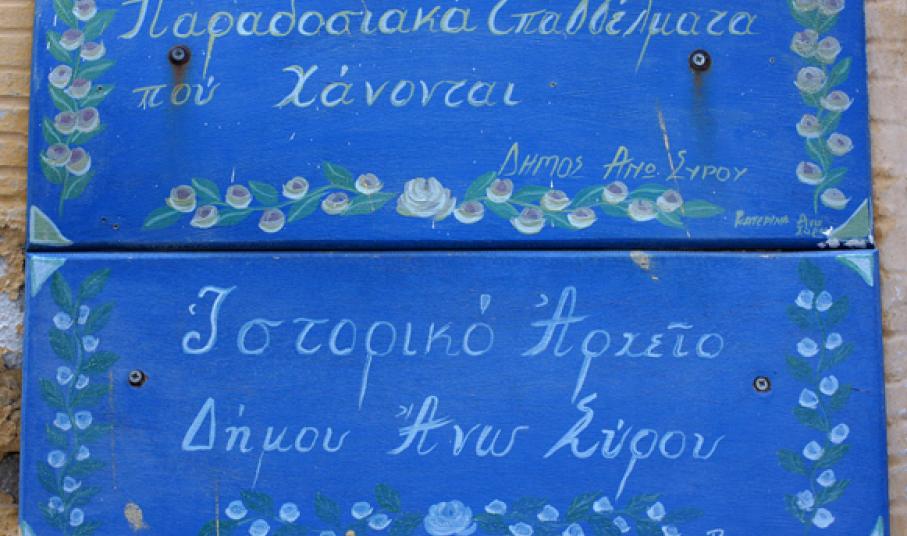 Παραδοσιακά Επαγγέλματα
πού Χάνονται
ΔΗΜΟΣ ΑΝΩ ΣΥΡΟΥ
ΚΑΤΕΡΙΝΑ
Ἱστορικό Ἀρχεῖο
Δήμου Ἄνω Σύρου